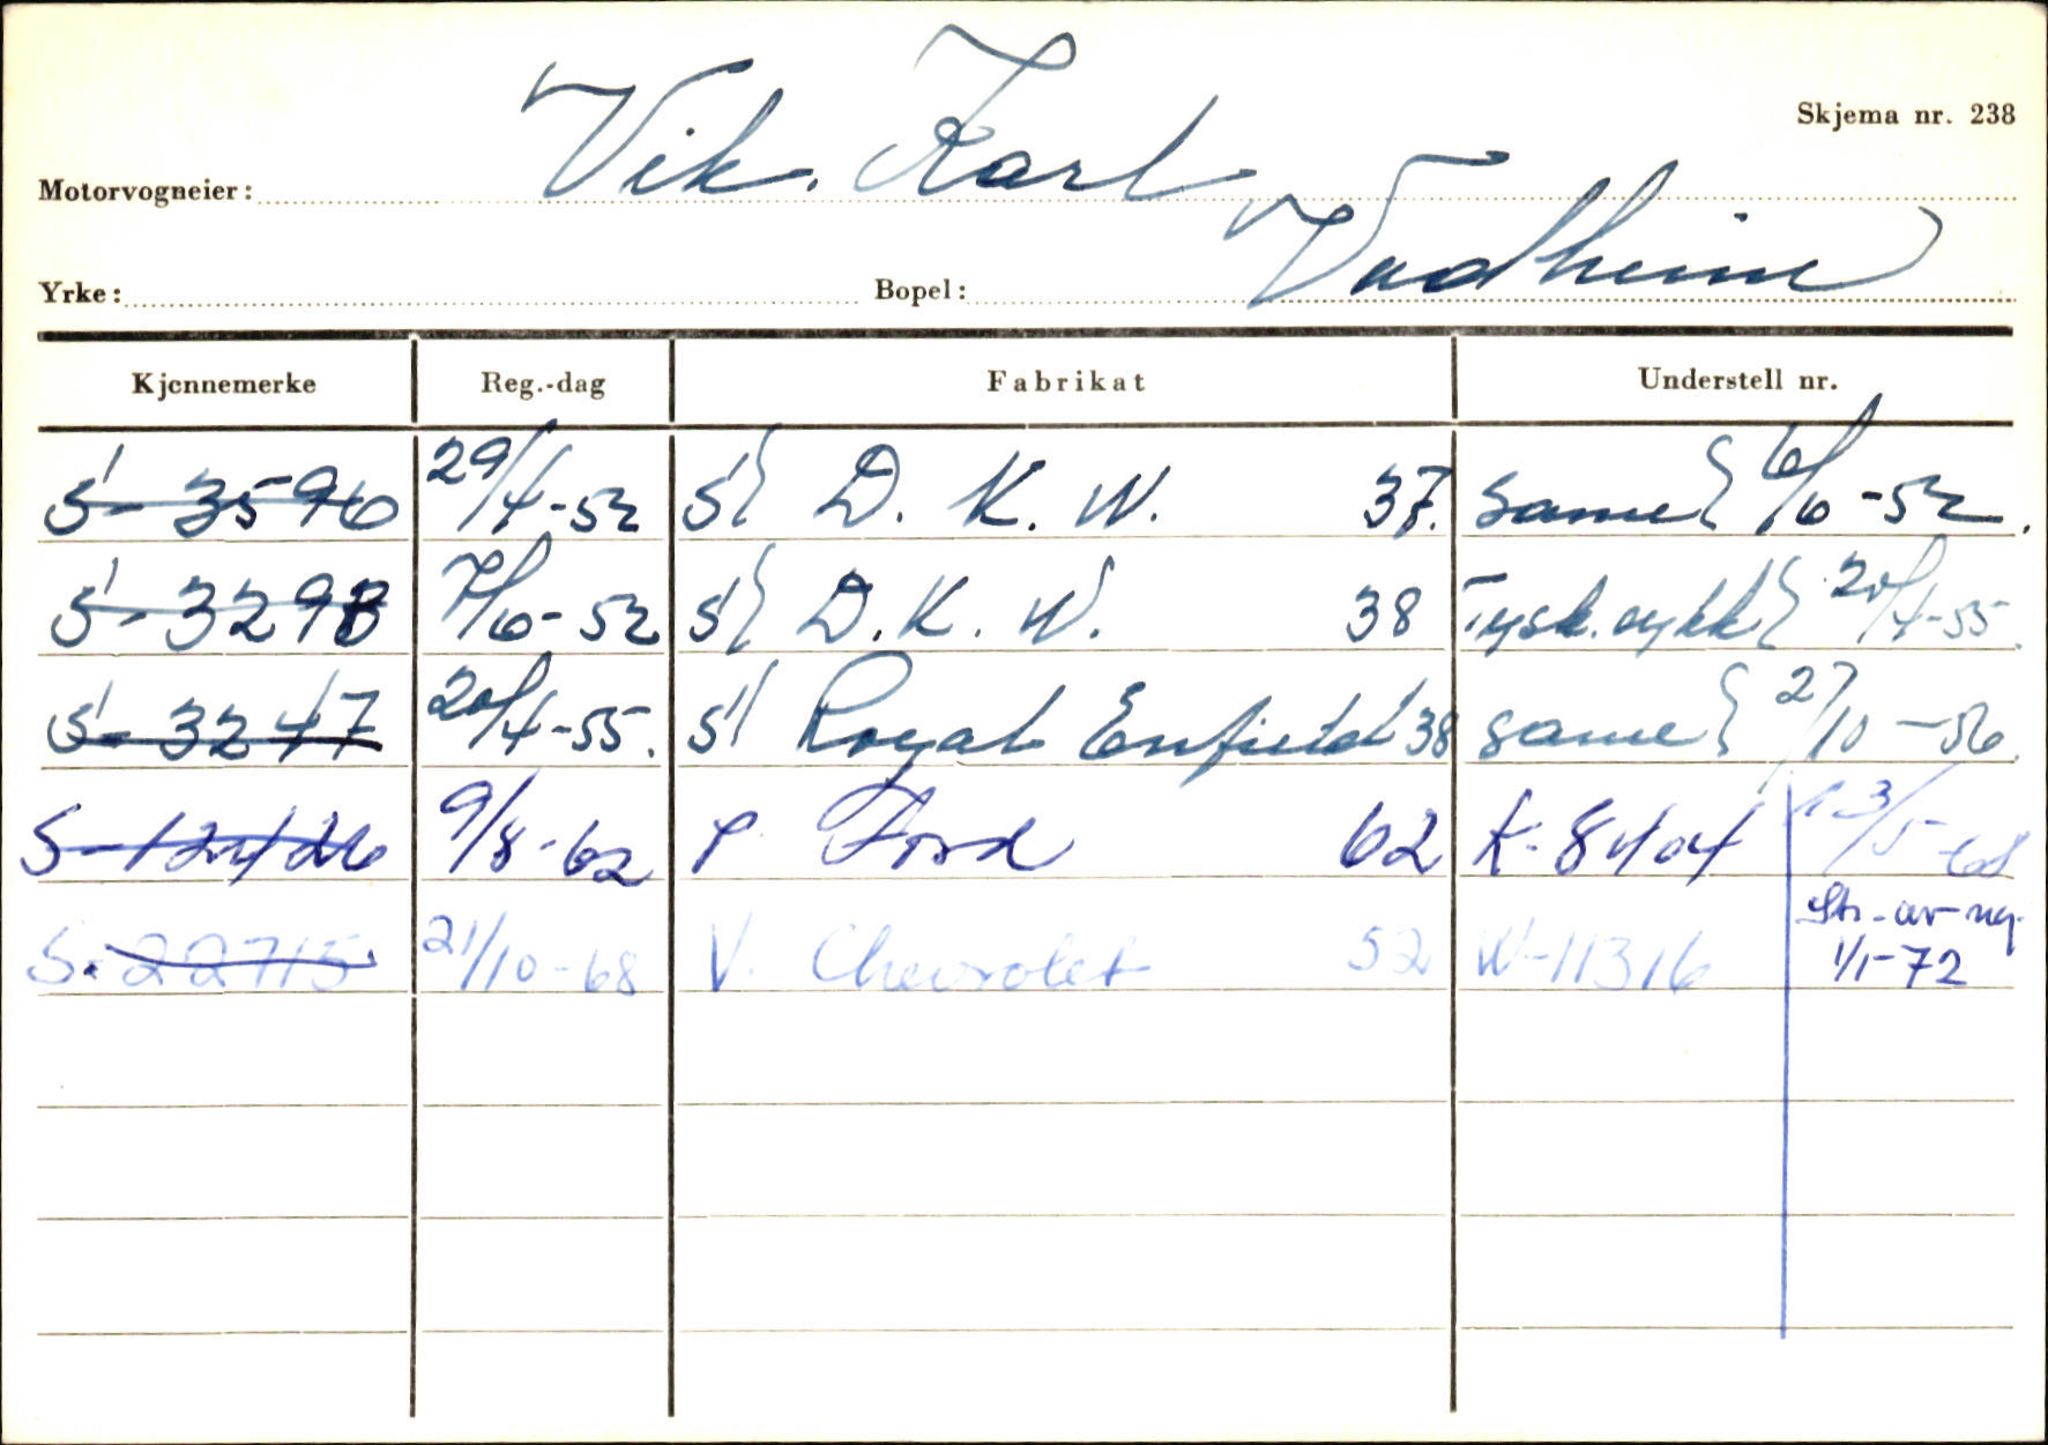 Skjema nr. 238
Motorvogneier: Vik. Karl
Yrke: Bopel: Vadheim
Kjennemerke Reg.-dag Fabrikat Understell nr.
S- 3596 29/4-52 S D. K. W. 37. Same 6/6-52.
S- 3298 7/6-52 S D. K. W. 38 Tysk. sykk 20/4-55.
S- 3247 20/4-55. S Royal Enfield 38 Same 27/10-56.
S-12426 9/8-62 P Ford 62 K-8404 13/5-68
S-22715 21/10-68 V. Chevrolet 52 W-11316 Str. av reg.
1/1-72